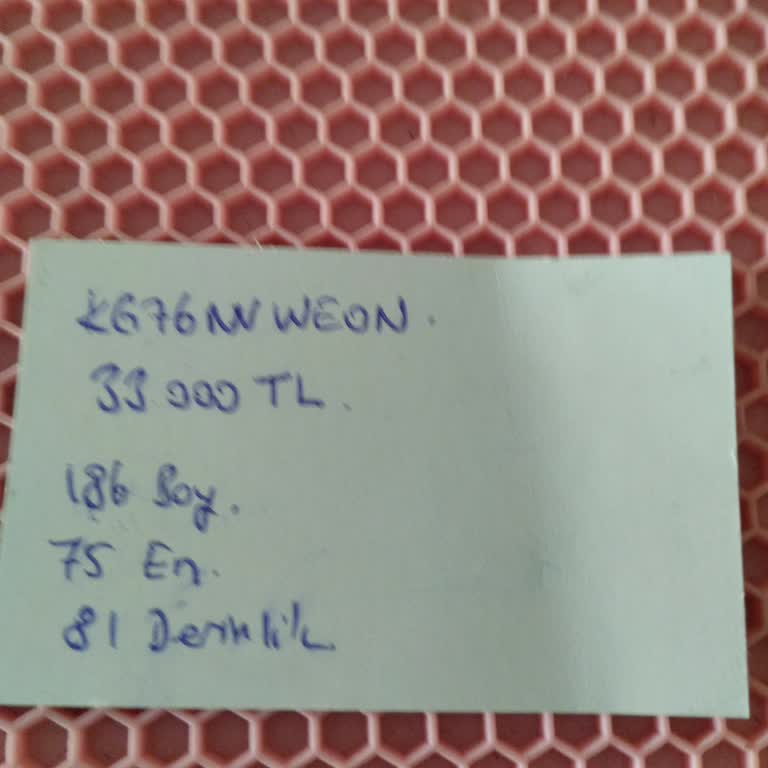 KG76NNWEON.
33000 TL.
186 Boy.
75 En.
81 Derinlik